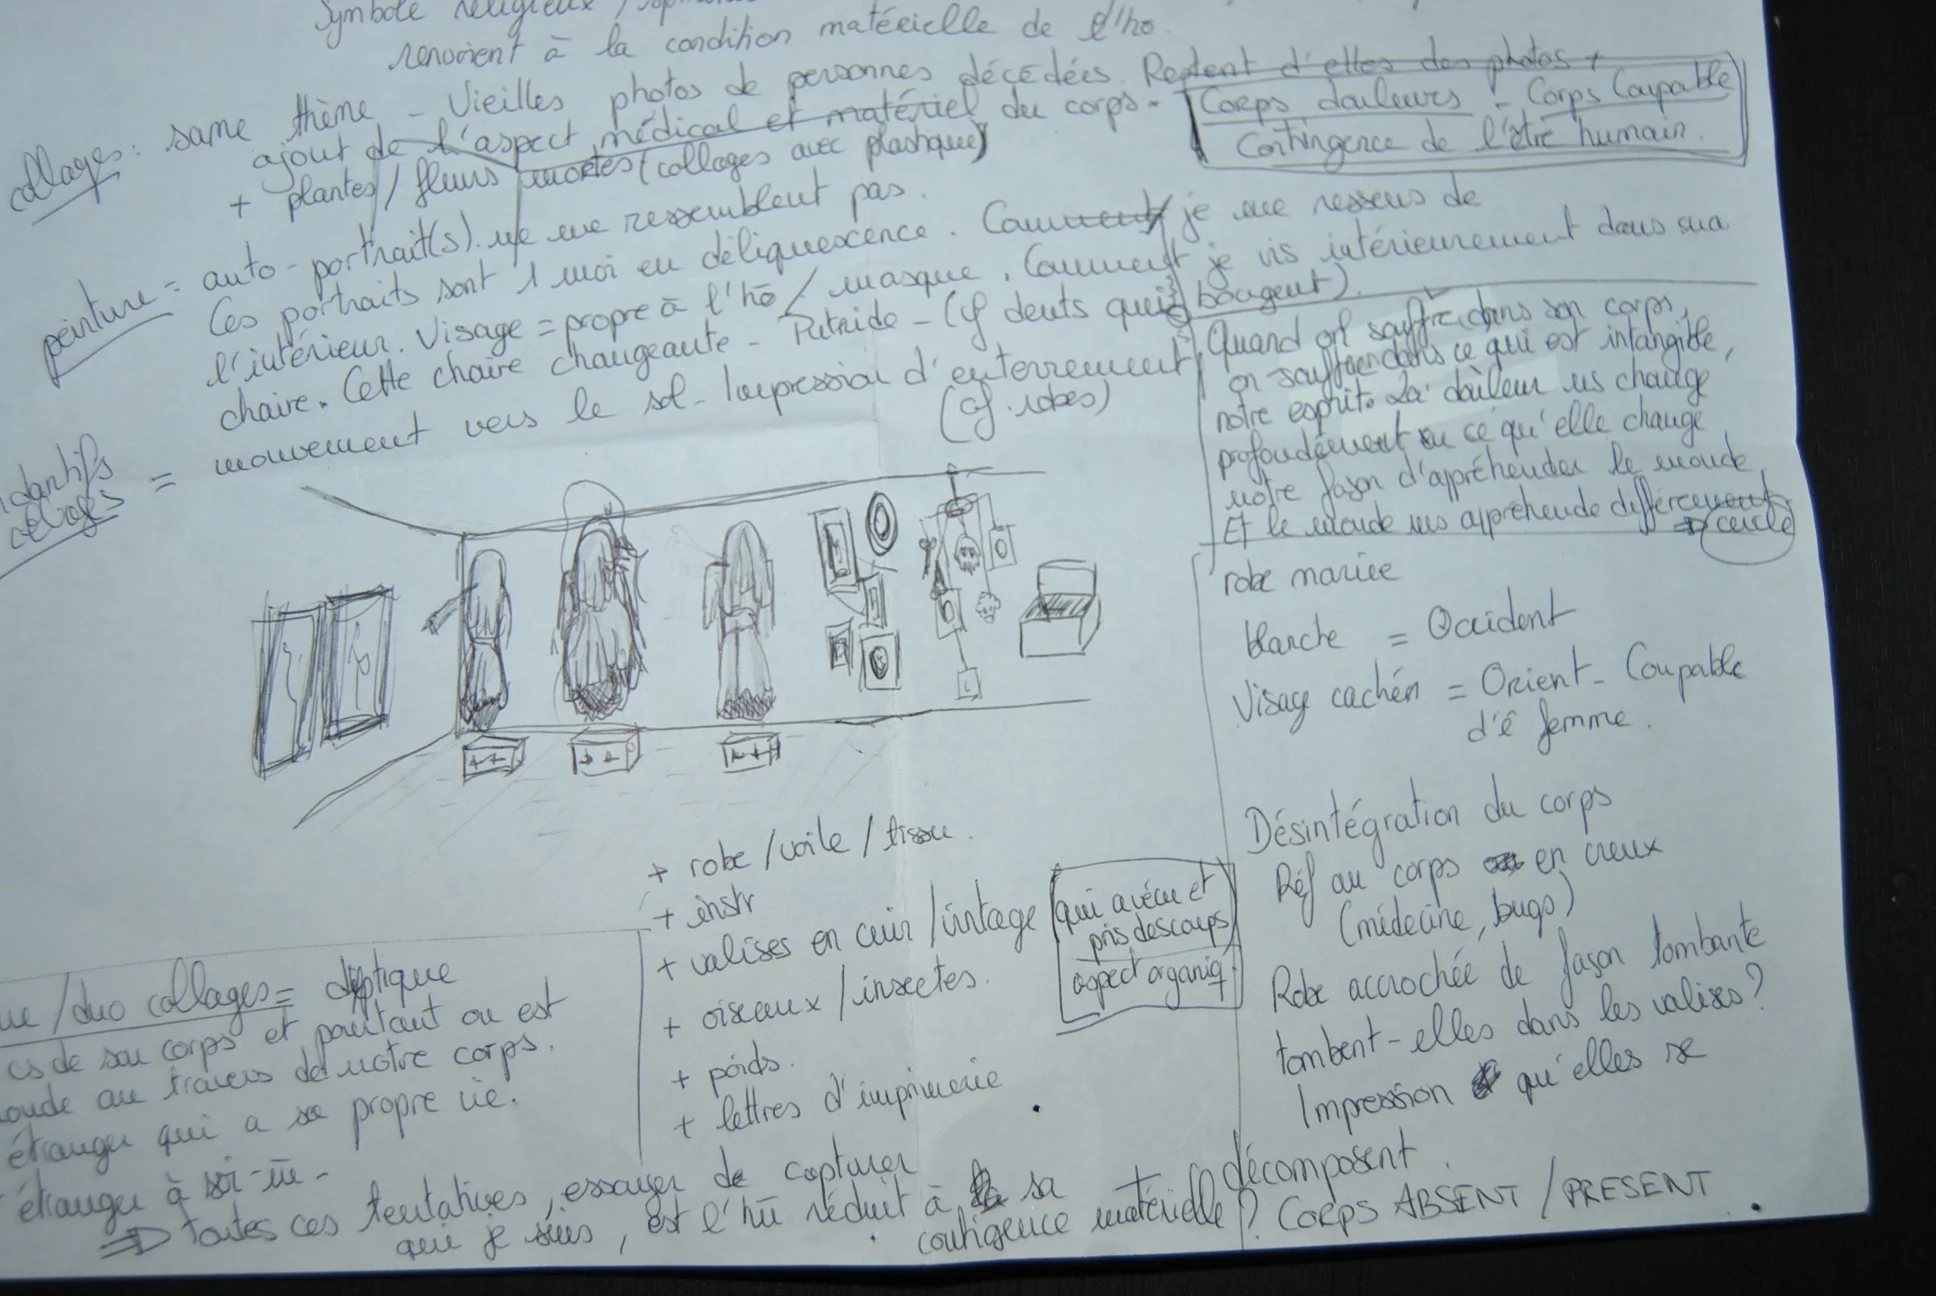 Symbole religieux /
renvoient à la condition matérielle de l'ho.
collages: same thème - Vieilles photos de personnes décédées. Restent d'elles des photos +
ajout de l'aspect médical et matériel du corps.
+ plantes / fleurs mortes (collages avec plastique)
Corps douleurs - Corps Coupable
Contingence de l'être humain.
peinture = auto-portrait(s). ne me ressemblent pas.
Ces portraits sont 1 moi en déliquescence. Comment je me ressens de
l'intérieur. Visage = propre à l'hō / masque. Comment je vis intérieurement dans ma
chaire. Cette chaire changeante - Putride - (cf dents qui bougent).
= mouvement vers le sol - Impression d'enterrement
(cf. robes)
Quand on souffre dans son corps,
on souffre dans ce qui est intangible,
notre esprit. La douleur ns change
profondément en ce qu'elle change
notre façon d'appréhender le monde
Et le monde ns appréhende différemment
⇒ cercle
robe mariée
blanche = Occident
Visage cachée = Orient - Coupable
d'ê femme.
Désintégration du corps
Réf au corps en creux
(médecine, bugs)
Robe accrochée de façon tombante
tombent-elles dans les valises?
Impression qu'elles se
décomposent.
+ robe / voile / tissu.
+ instr
+ valises en cuir / vintage
qui a vécu et
pris des coups
aspect organiq
+ oiseaux / insectes.
+ poids.
+ lettres d'imprimerie
/ duo collages = diptique
de son corps et pourtant on est
au travers de notre corps.
étranger qui a sa propre vie.
étranger à soi-m̄ -
⇒ toutes ces tentatives, essayer de capturer
qui je suis, est l'hū réduit à sa
contigence matérielle? Corps ABSENT / PRESENT.